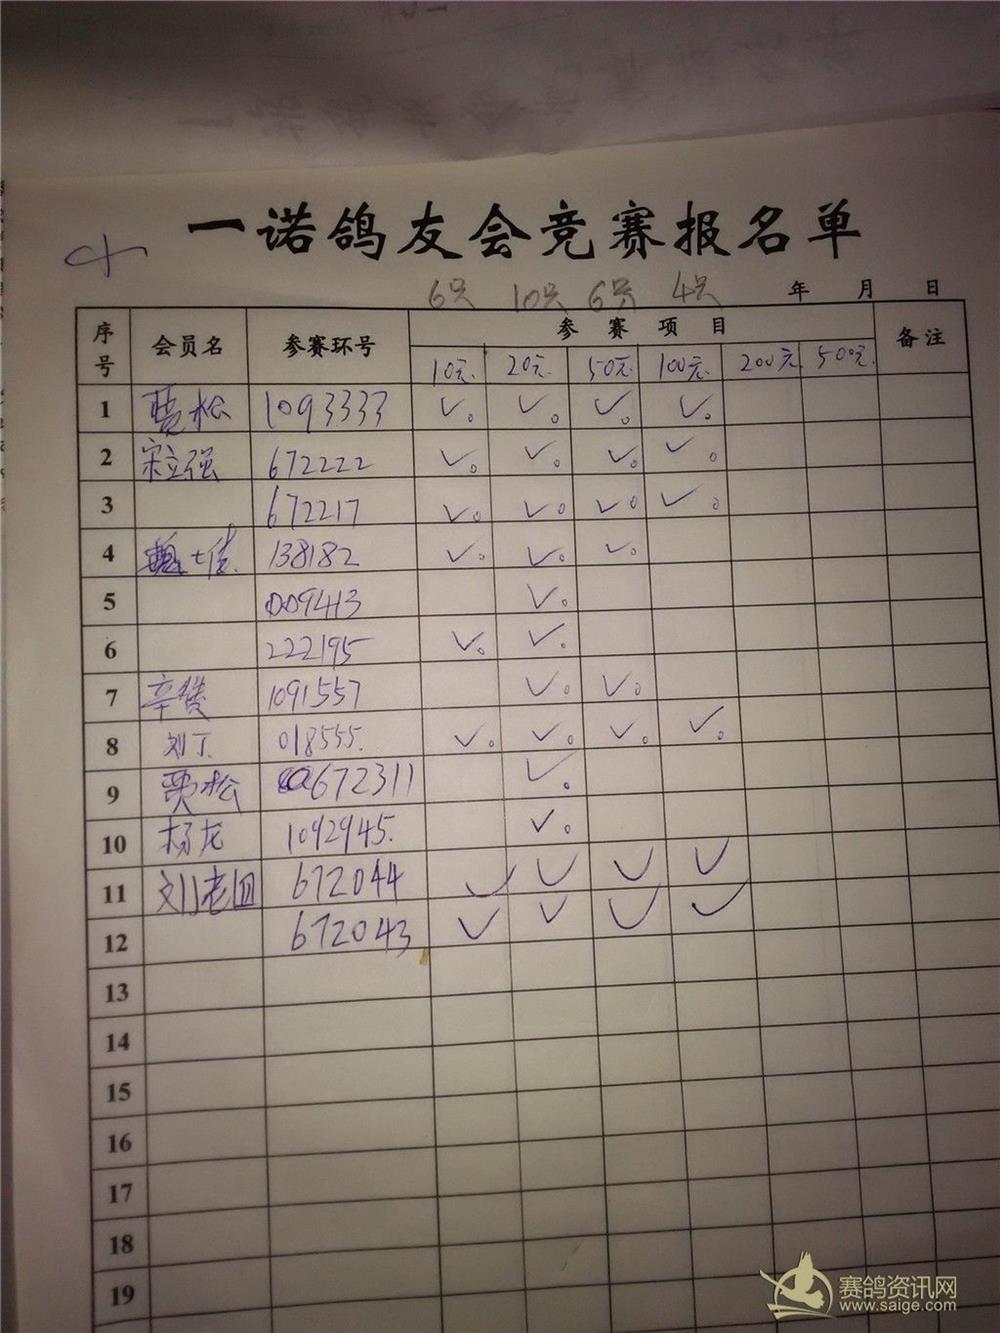 一诺鸽友会竞赛报名单
6只 10只 6只 4只 年 月 日
序号 会员名 参赛环号 参赛项目 备注
10元 20元 50元 100元 200元 500元
1 贾松 1093333 ✓。 ✓。 ✓。 ✓。
2 宋立强 672222 ✓。 ✓。 ✓。 ✓。
3 672217 ✓。 ✓。 ✓。 ✓。
4 138182 ✓。 ✓。 ✓。
5 009413 ✓。
6 222195 ✓。 ✓。
7 辛赞 1091557 ✓。 ✓。
8 刘丁 018555. ✓。 ✓。 ✓。 ✓。
9 贾松 672311 ✓。
10 杨龙 1092945. ✓。
11 刘老四 672044 ✓ ✓ ✓ ✓
12 672043 ✓ ✓ ✓ ✓
13
14
15
16
17
18
19
赛鸽资讯网
www.saige.com